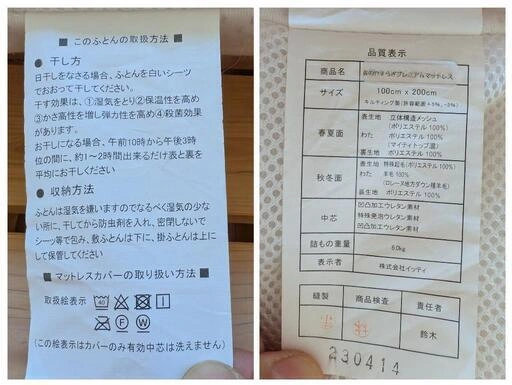 ■ このふとんの取扱方法 ■
● 干し方
日干しをなさる場合、ふとんを白いシーツ
でおおって干してください。
干す効果は、①湿気をとり②保温性を高め
③かさ高性を増し弾力性を高め④殺菌効果
があります。
お干しになる場合、午前10時から午後3時
位の間に、約1～2時間出来るだけ表と裏を
平均にお干しください。
● 収納方法
ふとんは湿気を嫌いますのでなるべく湿気の少な
い所に、干してから防虫剤を入れ、密閉しないで
シーツ等で包み、敷ふとんは下に、掛ふとんは上に
して保管してください
■ マットレスカバーの取り扱い方法 ■
取扱絵表示 40
F W
(この絵表示はカバーのみ有効中芯は洗えません)
品質表示
商品名 森の やすらぎプレミアムマットレス
サイズ 100cm × 200cm
キルティング製(許容範囲+5%、-3%)
春夏面 表生地 立体構造メッシュ
(ポリエステル 100%)
わた ポリエステル 100%
(マイティトップ混)
裏生地 ポリエステル 100%
秋冬面 表生地 特殊起毛(ポリエステル 100%)
わた 羊毛 100%
(ロレーヌ地方ダウン種羊毛)
裏生地 ポリエステル 100%
中芯 凹凸加工ウレタン素材
特殊発泡ウレタン素材
凹凸加工ウレタン素材
詰もの重量 6.0kg
表示者 株式会社イッティ
縫製 商品検査 責任者
鈴木
230414